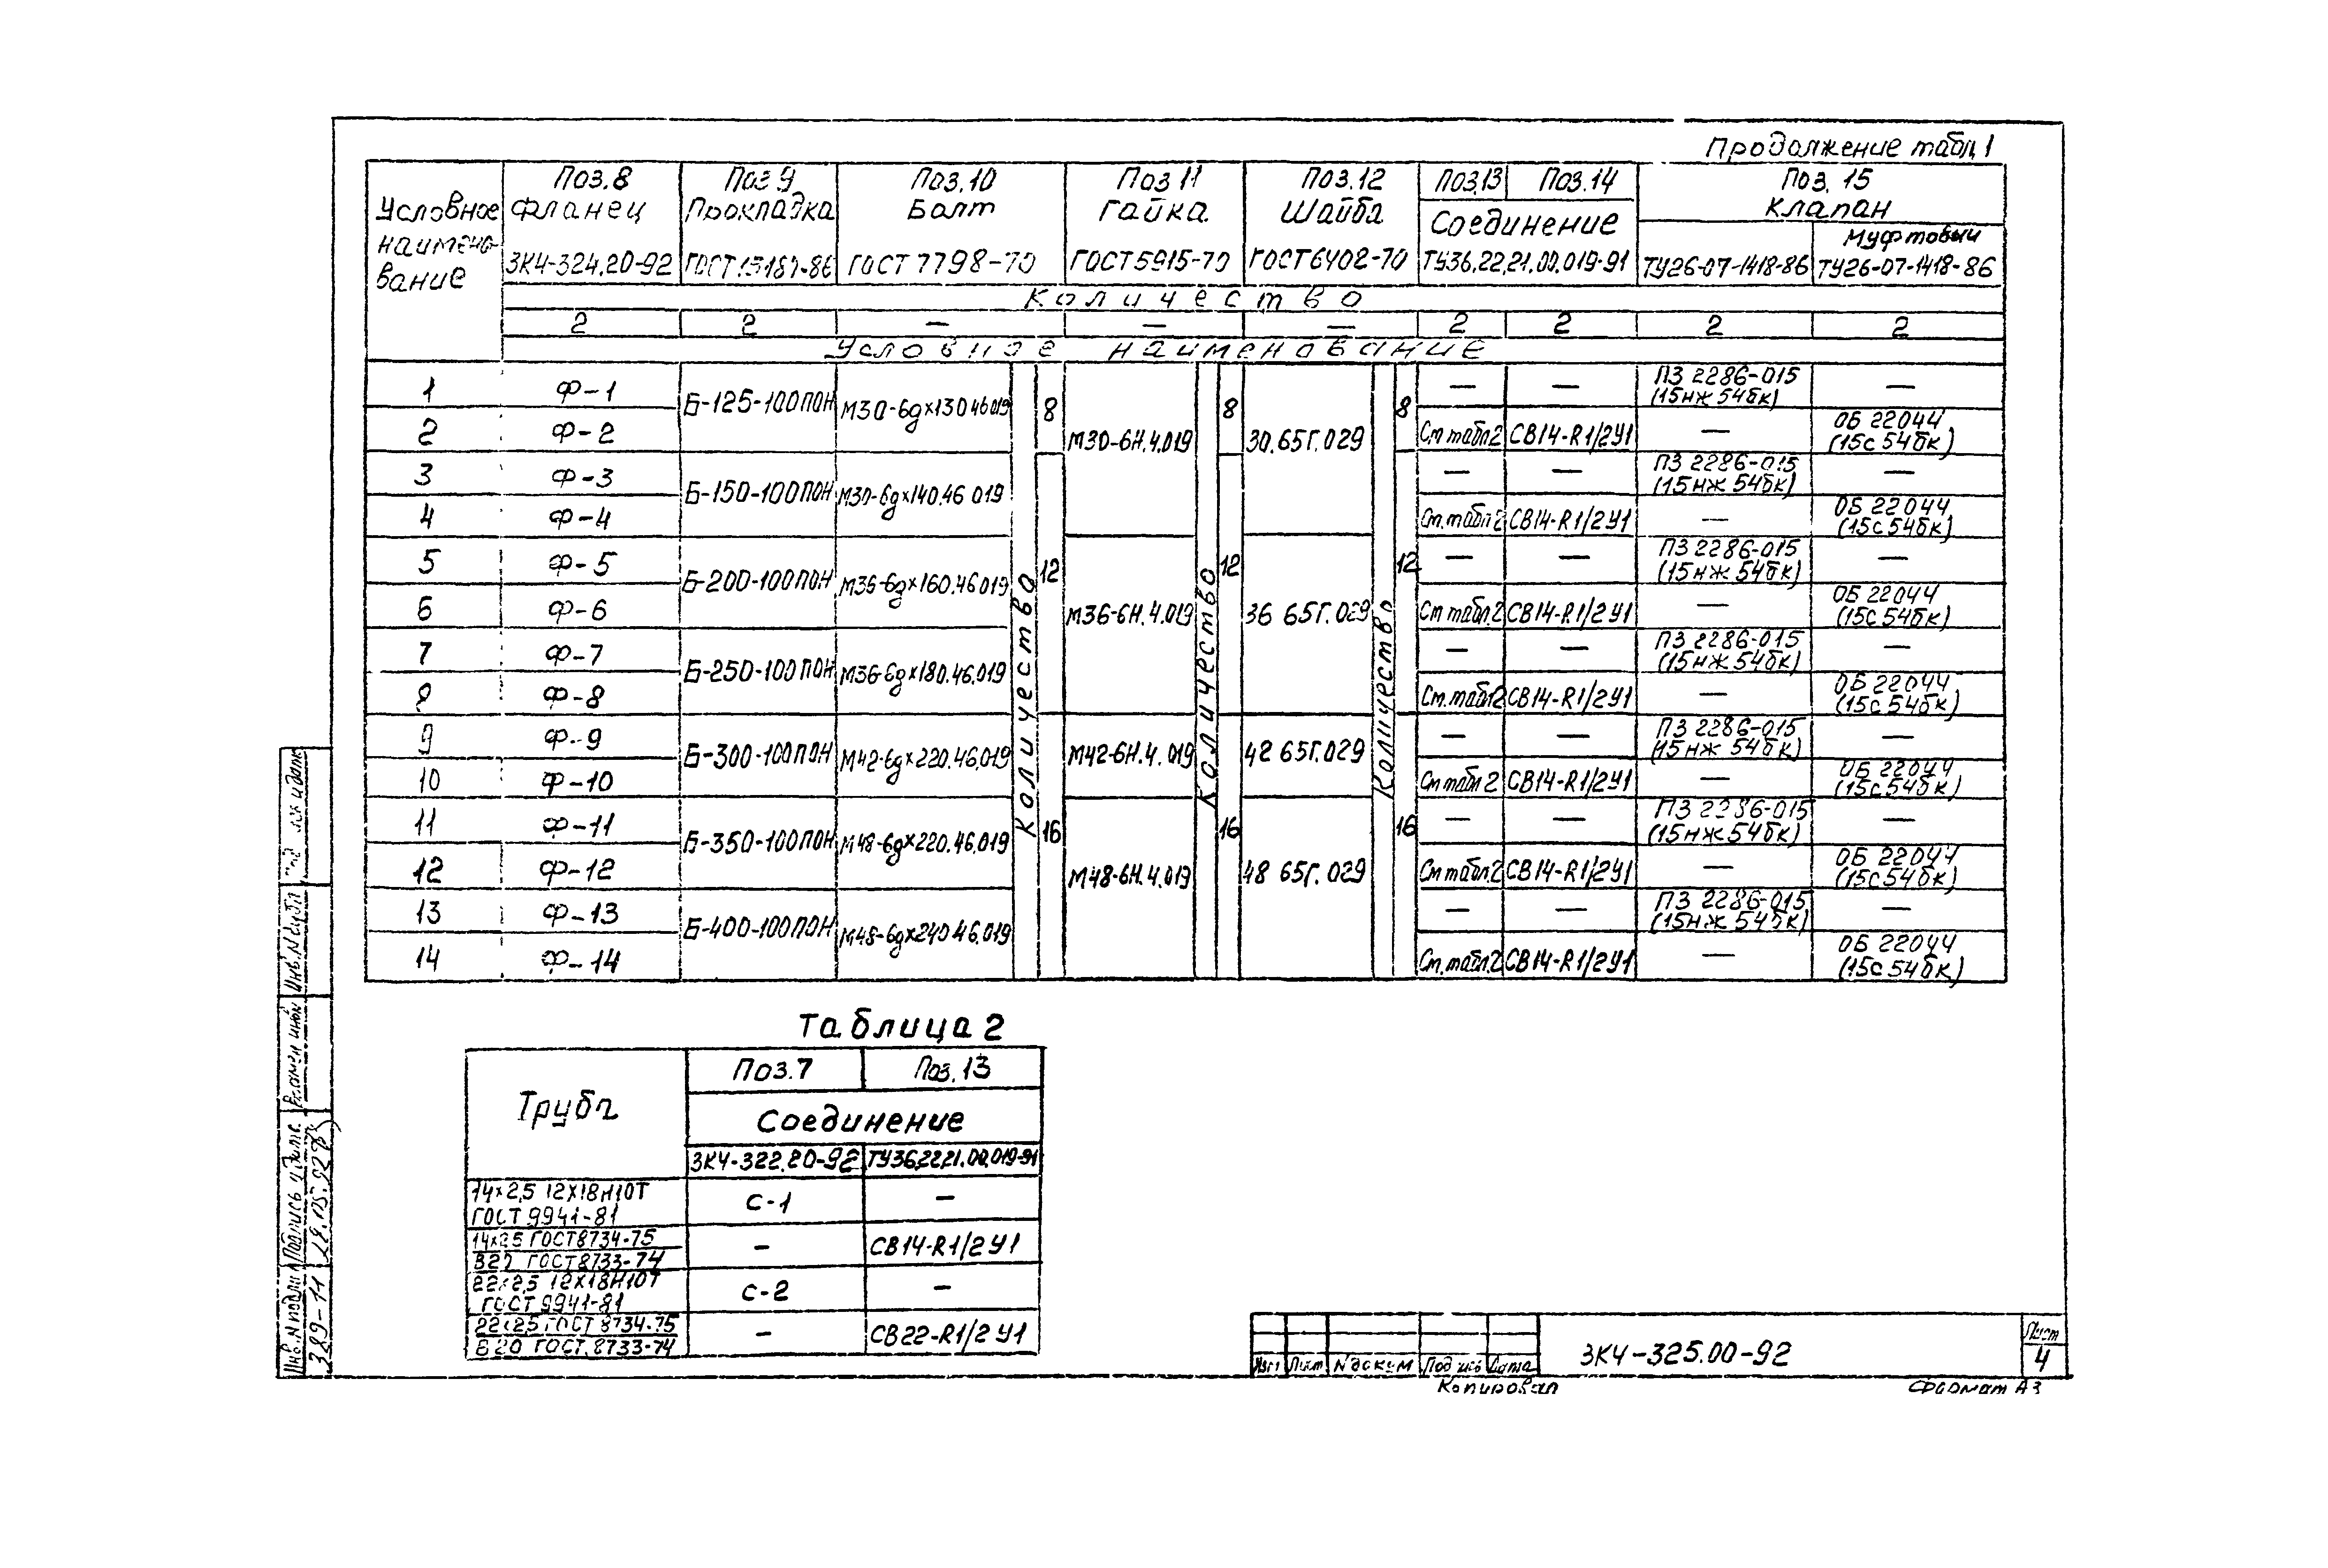 Продолжение табл. 1
Условное наимено-вание | Поз.8 Фланец ЗК4-324.20-92 | Поз 9 Прокладка ГОСТ 15180-86 | Поз.10 Болт ГОСТ 7798-70 | Поз 11 Гайка ГОСТ 5915-70 | Поз.12 Шайба ГОСТ 6402-70 | Поз.13 Поз.14 Соединение ТУ36.22.21.00.019-91 | Поз. 15 Клапан ТУ26-07-1418-86 | Муфтовый ТУ26-07-1418-86
Количество
2 2 — — — 2 2 2 2
Условное наименование
Количество 8 12 16
Количество 8 12 16
Количество 8 12 16
1 Ф-1 Б-125-100 ПОН М30-6gх130 46 019 М30-6Н.4.019 30.65Г.029 — — ПЗ 2286-015 (15нж 54бк) —
2 Ф-2 См табл 2 СВ14-R1/2У1 — ОБ 22044 (15с 54бк)
3 Ф-3 Б-150-100 ПОН М30-6gх140.46 019 — — ПЗ 2286-015 (15нж 54бк) —
4 Ф-4 См. табл 2 СВ14-R1/2У1 — ОБ 22044 (15с 54бк)
5 Ф-5 Б-200-100 ПОН М36-6gх160.46 019 М36-6Н.4.019 36 65Г.029 — — ПЗ 2286-015 (15нж 54бк) —
6 Ф-6 См табл.2 СВ14-R1/2У1 — ОБ 22044 (15с 54бк)
7 Ф-7 Б-250-100 ПОН М36-6gх180.46.019 — — ПЗ 2286-015 (15нж 54бк) —
8 Ф-8 См. табл 2 СВ14-R1/2У1 — ОБ 22044 (15с 54бк)
9 Ф-9 Б-300-100 ПОН М42-6gх220.46.019 М42-6Н.4.019 42 65Г.029 — — ПЗ 2286-015 (15нж 54бк) —
10 Ф-10 См табл 2 СВ14-R1/2У1 — ОБ 22044 (15с 54бк)
11 Ф-11 Б-350-100 ПОН М48-6gх220.46.019 М48-6Н.4.019 48 65Г.029 — — ПЗ 2286-015 (15нж 54бк) —
12 Ф-12 См табл.2 СВ14-R1/2У1 — ОБ 22044 (15с 54бк)
13 Ф-13 Б-400-100 ПОН М48-6gх240 46.019 — — ПЗ 2286-015 (15нж 54бк) —
14 Ф-14 См. табл.2 СВ14-R1/2У1 — ОБ 22044 (15с 54бк)
Таблица 2
Труба Поз.7 Поз.13
Соединение
ЗК4-322.20-92 ТУ36.22.21.00.019-91
14х2,5 12Х18Н10Т
ГОСТ 9941-81 С-1 —
14х2,5 ГОСТ 8734-75
В20 ГОСТ 8733-74 — СВ14-R1/2 У1
22х2,5 12Х18Н10Т
ГОСТ 9941-81 С-2 —
22х2,5 ГОСТ 8734-75
В20 ГОСТ 8733-74 — СВ22-R1/2 У1
Инв. N подл Подпись и дата Взамен инв N Инв. N дубл Подпись и дата
389-11
Изм Лист N докум Подпись Дата
ЗК4-325.00-92
Лист
4
Копировал
Формат А3